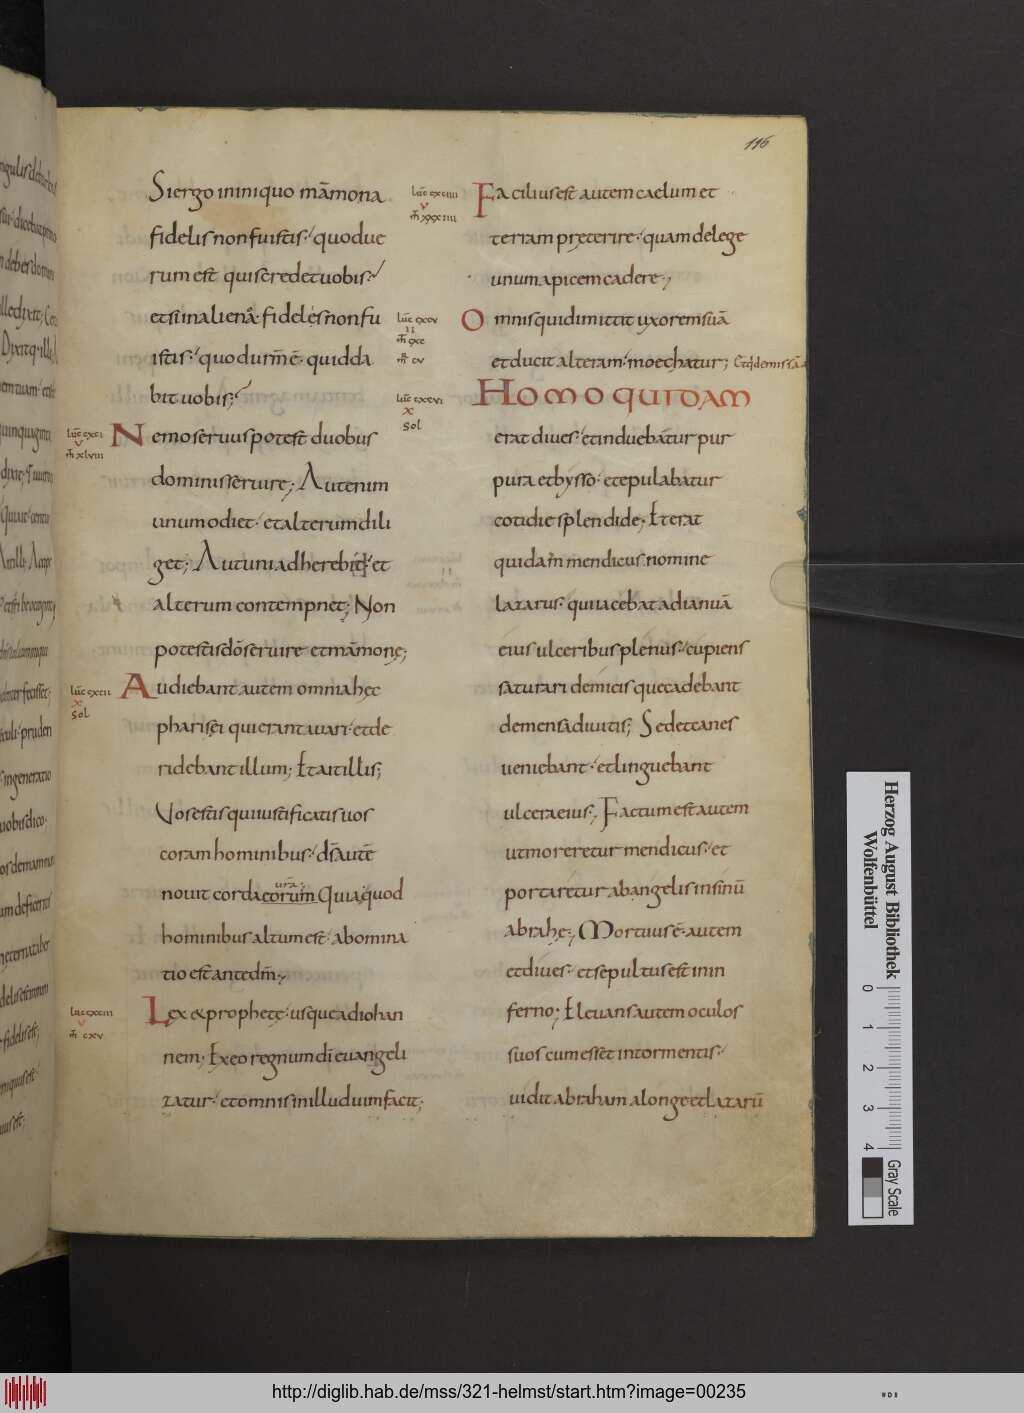 116
Si ergo in iniquo māmona
fidelis non fuistis quod ue
rum est quis credet uobis
et si in alieno fideles non fu
istis quod urm̄ ē quid da
bit uobis;
luc̄ cxci
v
m̄ xlviii
Nemo seruus potest duobus
dominis seruire; Aut enim
unum odiet et alterum dili
get; Aut uni adherebit et
alterum contempnet; Non
potestis dō seruire et māmonę;
luc̄ cxcii
x
sol
Audiebant autem omnia hęc
pharisei qui erant auari et de
ridebant illum; Et ait illis;
Vos estis qui iustificatis uos
coram hominibus dś autē
ura
nouit corda corum Quia quod
hominibus altum est abomina
tio est ante dm̄;
luc̄ cxciii
v
m̄ cxv
Lex & prophetę usque ad iohan
nem; Ex eo regnum dī euangeli
zatur et omnis in illud uim facit;
luc̄ cxciiii
v
Facilius est autem caelum et
terram pręterire quam de lege
unum apicem cadere;
luc̄ cxcv
ii
m̄ cxc
m̄r cv
Omnis qui dimittit uxorem suā
et ducit alteram moechatur;
luc̄ cxcvi
x
sol
HOMO QUIDAM
erat diues et induebatur pur
pura et bysso et epulabatur
cotidie splendide; Et erat
quidam mendicus nomine
lazarus qui iacebat ad ianuā
eius ulceribus plenus cupiens
saturari de micis que cadebant
de mensa diuitis; Sed et canes
ueniebant et linguebant
ulcera eius; Factum est autem
ut moreretur mendicus et
portaretur ab angelis in sinū
abrahe; Mortuus ē autem
et diues et sepultus est in in
ferno; Eleuans autem oculos
suos cum esset in tormentis
uidit abraham a longe et lazarū
Herzog August Bibliothek
Wolfenbüttel
0 1 2 3 4
Gray Scale
http://diglib.hab.de/mss/321-helmst/start.htm?image=00235